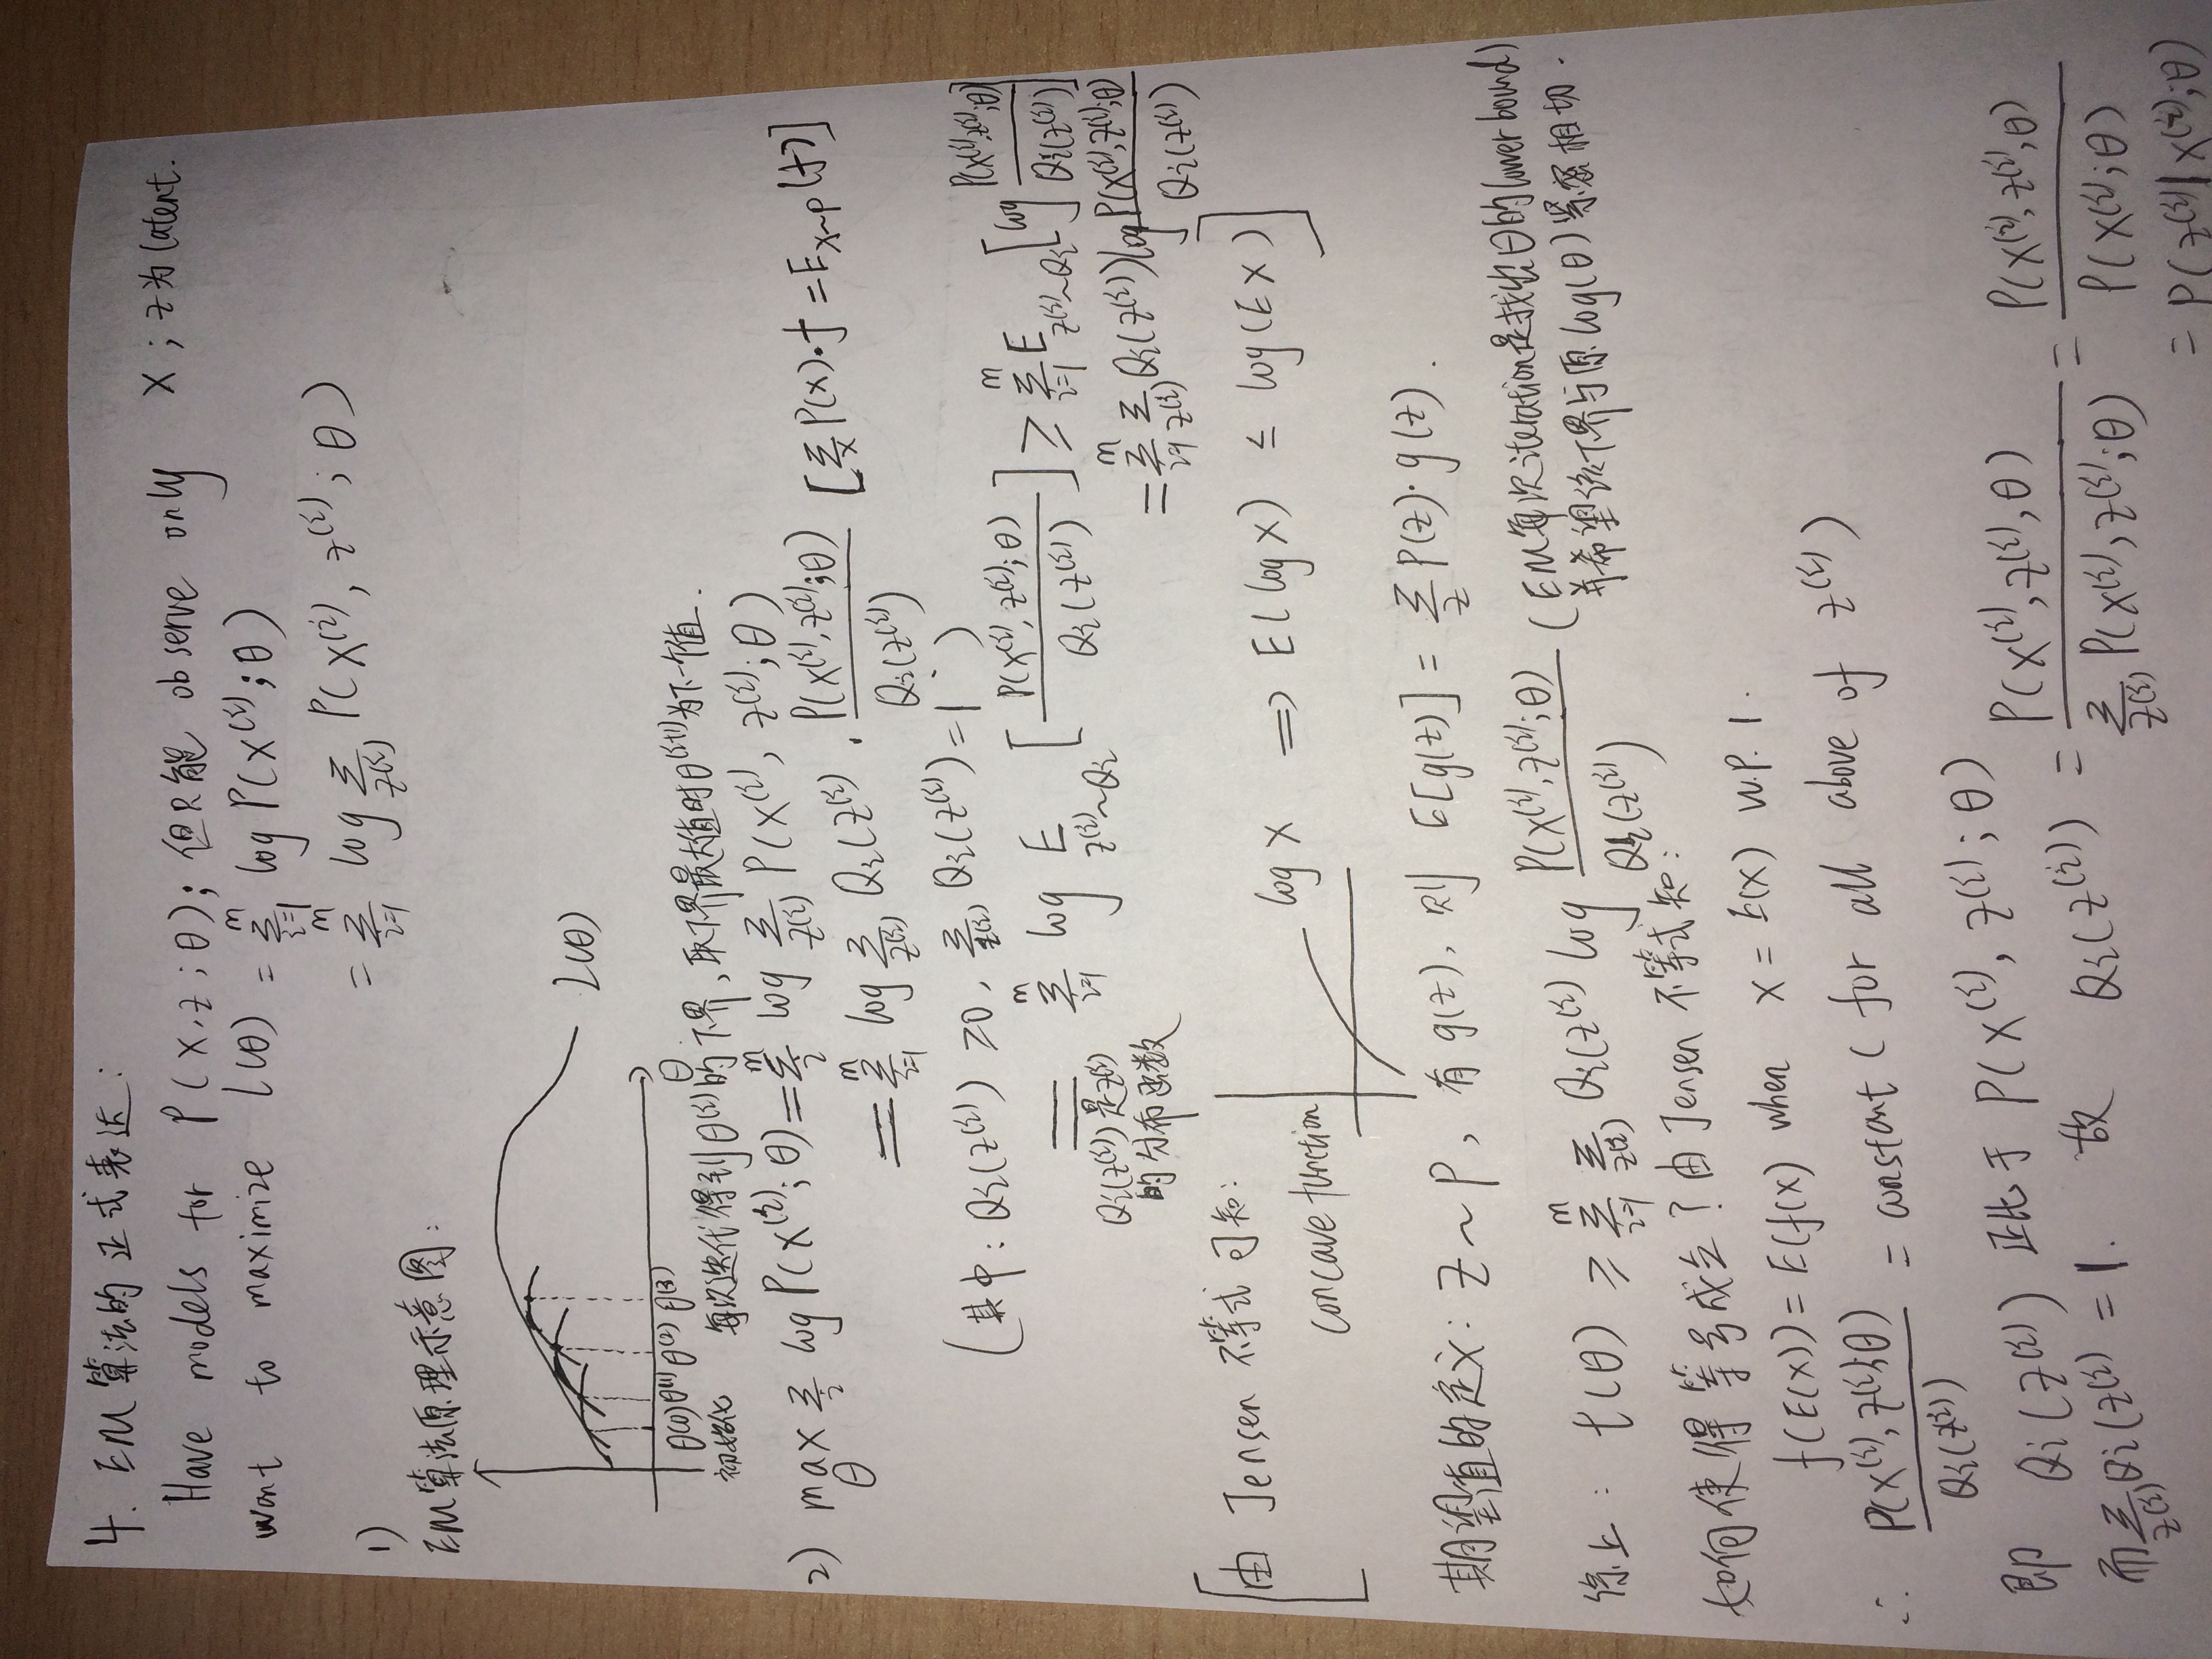 4. EM算法的正式表达:
Have models for P(x,z;θ);但只能 observe only x;z为latent.
want to maximize l(θ) = Σ_{i=1}^{m} log P(x^(i);θ)
= Σ_{i=1}^{m} log Σ_{z^(i)} P(x^(i), z^(i);θ)
1)
EM算法原理示意图:
L(θ)
θ^(0) θ^(1) θ^(2) θ^(3) θ
初始化 每次迭代得到θ^(i)的下界,取下界最大值时θ^(i+1)为下一个值.
2) max_θ Σ_i log P(x^(i);θ) = Σ_i^m log Σ_{z^(i)} P(x^(i), z^(i);θ)
= Σ_{i=1}^{m} log Σ_{z^(i)} Q_i(z^(i) · P(x^(i),z^(i);θ) / Q_i(z^(i)) [Σ_x P(x)·f = E_{x~p}(f)]
(其中: Q_i(z^(i)) ≥0, Σ_{z^(i)} Q_i(z^(i)) = 1)
= Σ_{i=1}^{m} log E_{z^(i)~Q_i} [P(x^(i),z^(i);θ) / Q_i(z^(i))] ≥ Σ_{i=1}^{m} E_{z^(i)~Q_i} [log P(x^(i),z^(i);θ) / Q_i(z^(i))]
Q_i(z^(i))是z^(i)
的分布函数
= Σ_{i=1}^{m} Σ_{z^(i)} Q_i(z^(i)) log P(x^(i),z^(i);θ) / Q_i(z^(i))
[由 Jensen 不等式可知:
concave function log x ⇒ E(log x) ≤ log(Ex)]
期望值的定义: z~P, 有g(z), 则 E[g(z)] = Σ_z P(z)·g(z).
综上: l(θ) ≥ Σ_{i=1}^{m} Σ_{z^(i)} Q_i(z^(i) log P(x^(i),z^(i);θ) / Q_i(z^(i)) (EM每次iteration是找出θ的lower bound)
并希望该下界与原log(θ)紧密相切.
如何使得等号成立?由Jensen不等式知:
f(E(x)) = E(f(x) when x = E(x) w.p. 1.
∴ P(x^(i),z^(i);θ) / Q_i(z^(i)) = constant (for all above of z^(i))
即 Q_i(z^(i)) 正比于 P(x^(i), z^(i);θ)
而Σ_{z^(i)} Q_i(z^(i) = 1. 故 Q_i(z^(i)) = P(x^(i),z^(i),θ) / Σ_{z^(i)} P(x^(i),z^(i);θ) = P(x^(i),z^(i),θ) / P(x^(i);θ)
= P(z^(i)|x^(i);θ)